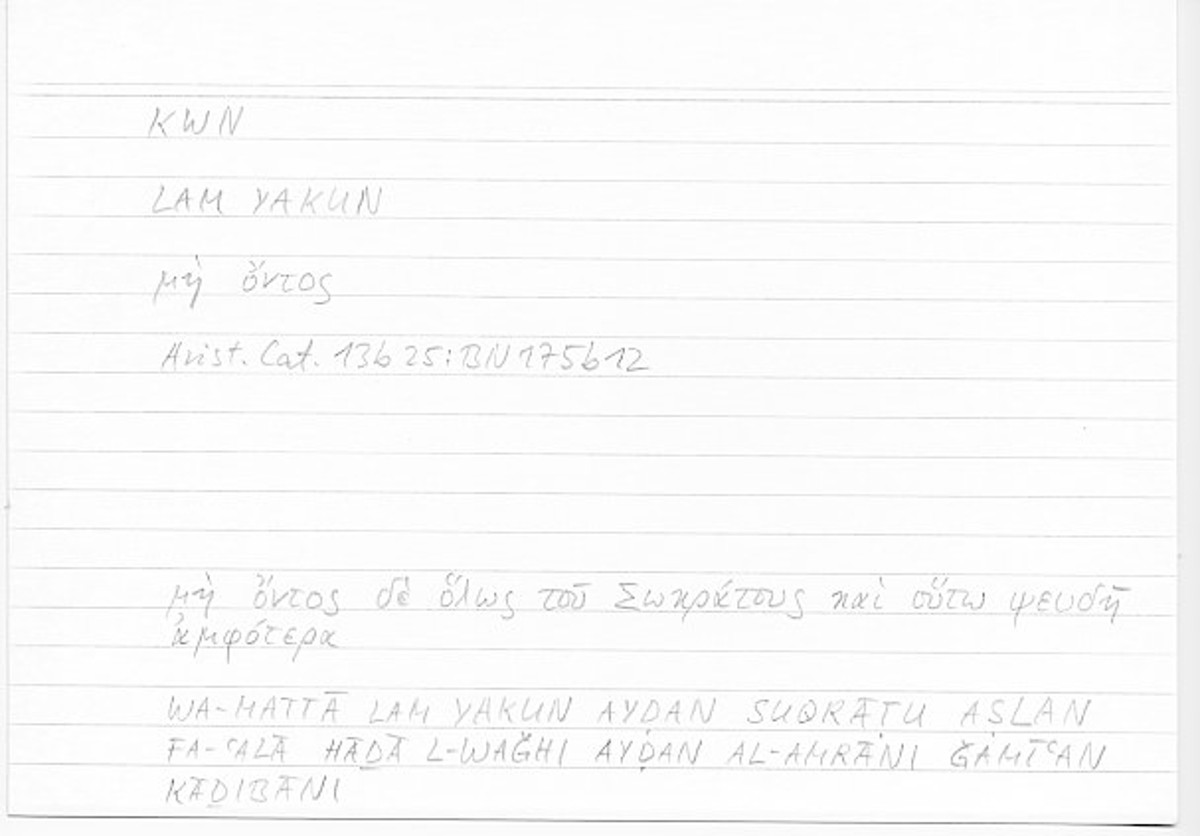 KWN
LAM YAKUN
μὴ ὄντος
Arist. Cat. 13b25: BN 175b12
μὴ ὄντος δὲ ὅλως τοῦ Σωκράτους καὶ οὕτω ψευδῆ
ἀμφότερα
WA-MATTĀ LAM YAKUN AYḌAN SUQRĀṬU AṢLAN
FA-ʿALĀ HĀḎĀ L-WAǦHI AYḌAN AL-AMRĀNI ǦAMĪʿAN
KĀḎIBĀNI